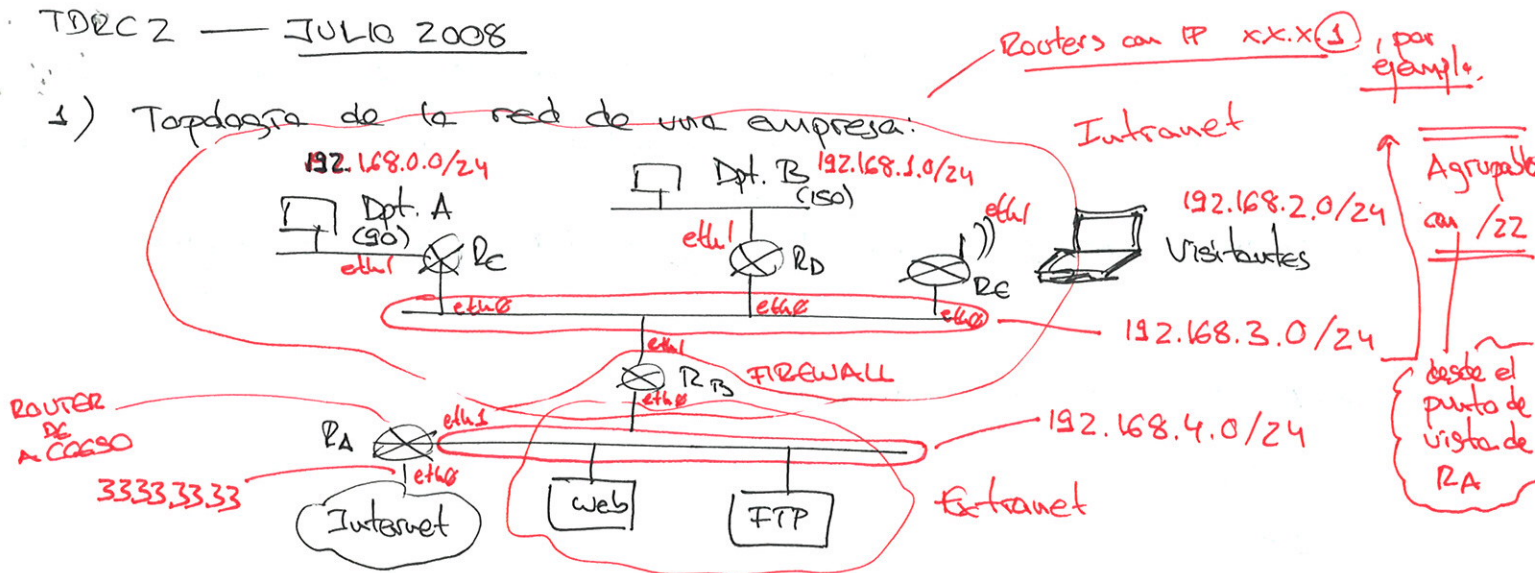 TDRC2 — JULIO 2008
Routers con IP x.x.x.1, por
ejemplo.
1) Topología de la red de una empresa:
Intranet
192.168.0.0/24
Dpt. A
(90)
eth1
RC
eth0
Dpt. B
(150)
192.168.1.0/24
eth1
RD
eth0
eth1
RE
eth0
192.168.2.0/24
Visitantes
Agrupable
con /22
desde el
punto de
vista de
RA
192.168.3.0/24
eth1
RB
FIREWALL
eth0
ROUTER
DE
ACCESO
RA
eth1
eth0
192.168.4.0/24
33.33.33.33
Internet
Web
FTP
Extranet